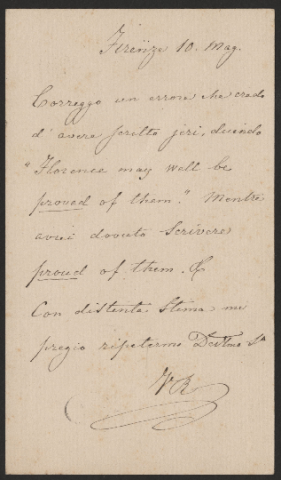 Firenze 10. Mag.
Correggo un errore che credo
d'avere scritto jeri, dicendo
"Florence may well be
proued of them." Mentre
avrei dovuto scrivere
proud of them. &
Con distinta stima mi
pregio ripetermi
VR